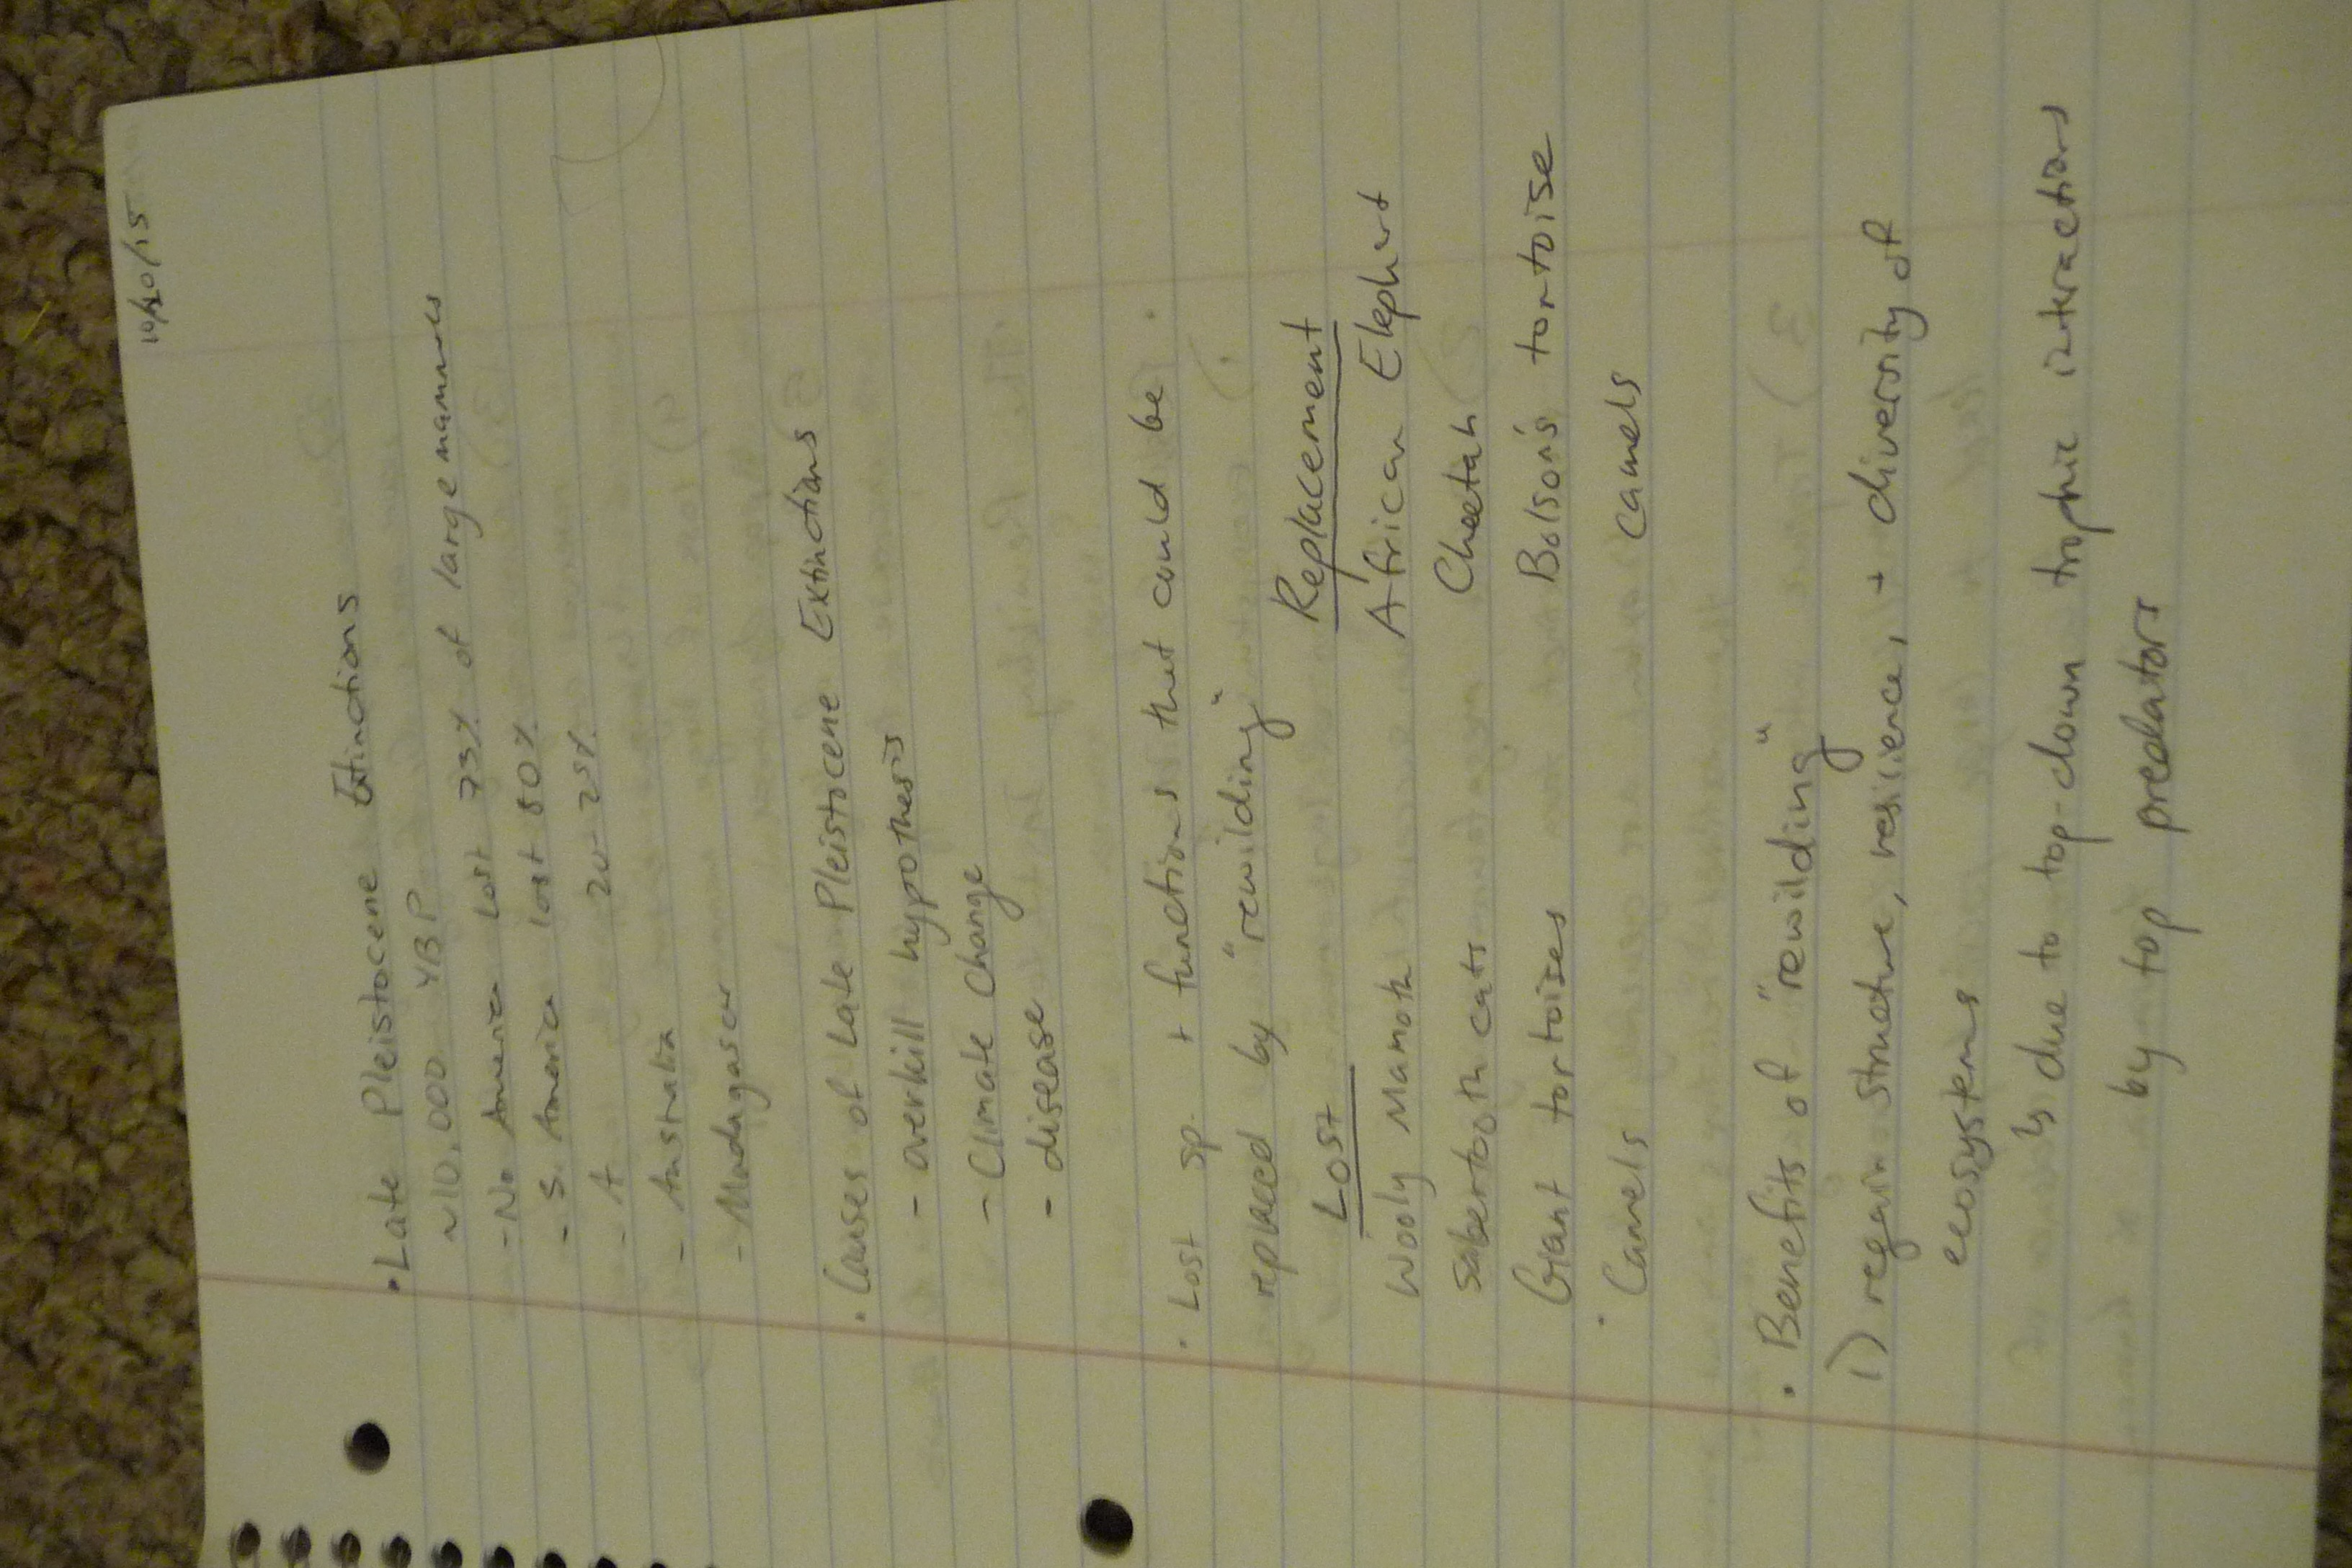 10/20/15
• Late Pleistocene Extinctions
~10,000 YBP
- No America lost 73% of large mammals
- S. America lost 80%
- A 20-25%
- Australia
- Madagascar
• Causes of Late Pleistocene Extinctions
- overkill hypothesis
- Climate Change
- disease
• Lost sp. + functions that could be
replaced by "rewilding"
Lost Replacement
Wooly Mamoth African Elephant
Sabertooth cats Cheetah
Giant tortoises Bolson's tortoise
• Camels camels
• Benefits of "rewilding"
1) regain structure, resilience, + diversity of
ecosystems
↳ due to top-down trophic interactions
by top predators